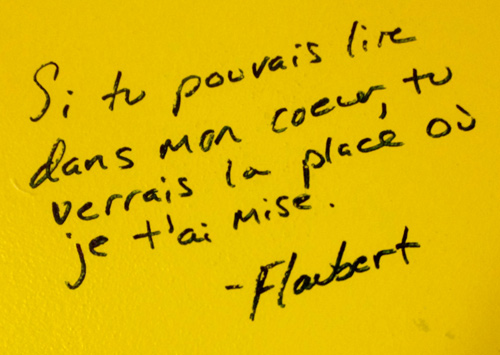 Si tu pouvais lire
dans mon coeur, tu
verrais la place où
je t'ai mise.
-Flaubert